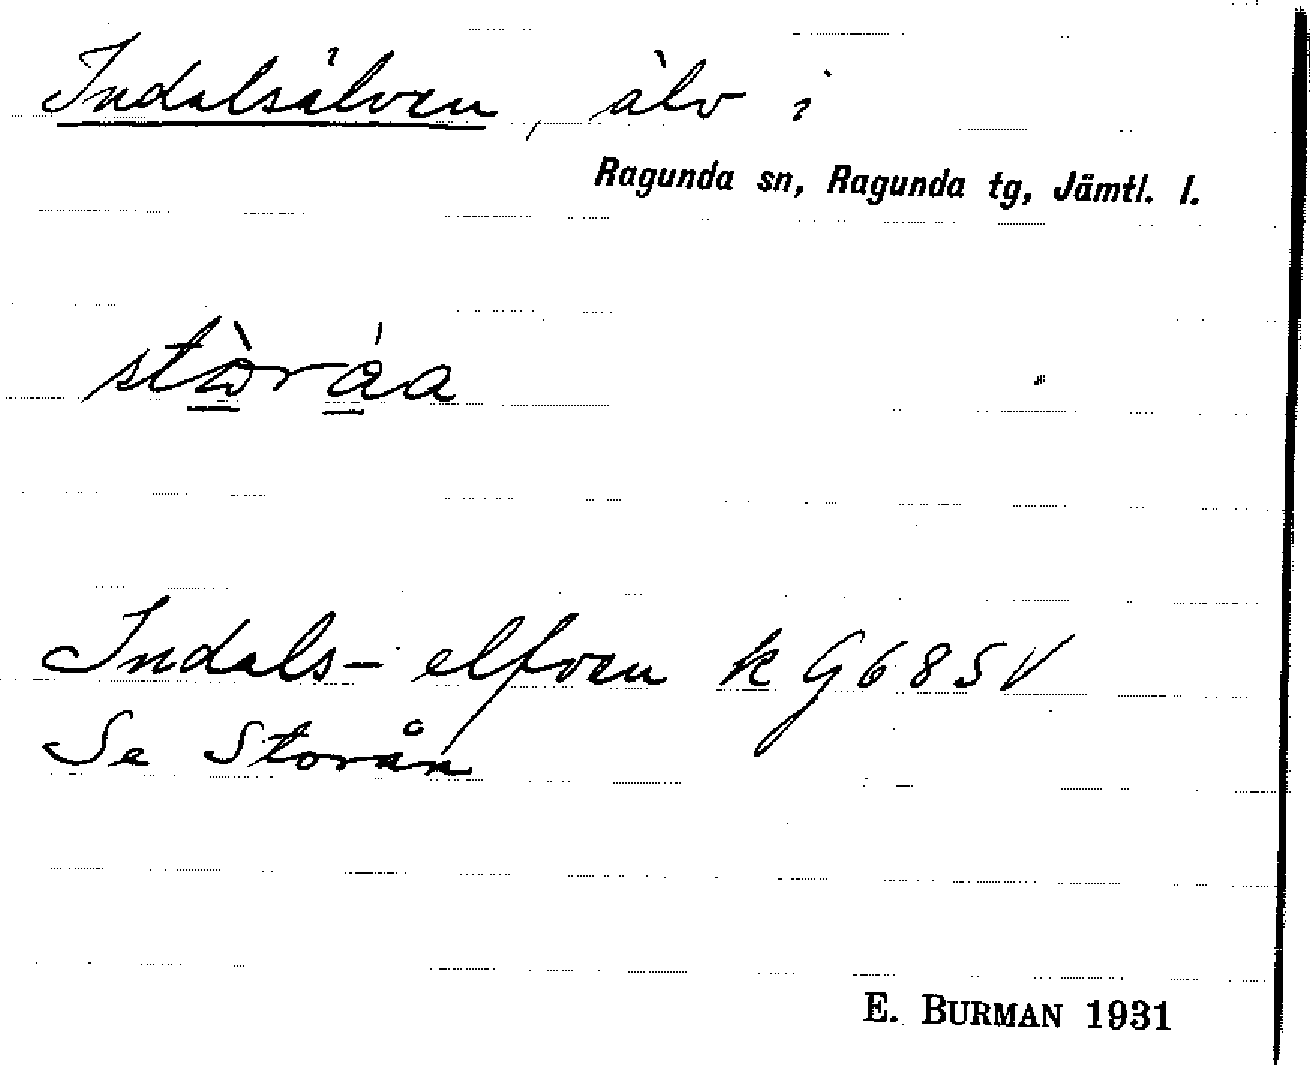 Indalsälven, älv i
Ragunda sn, Ragunda tg, Jämtl. l.
stòráa
Indals-elfven k G68SV
Se Storån
E. BURMAN 1931